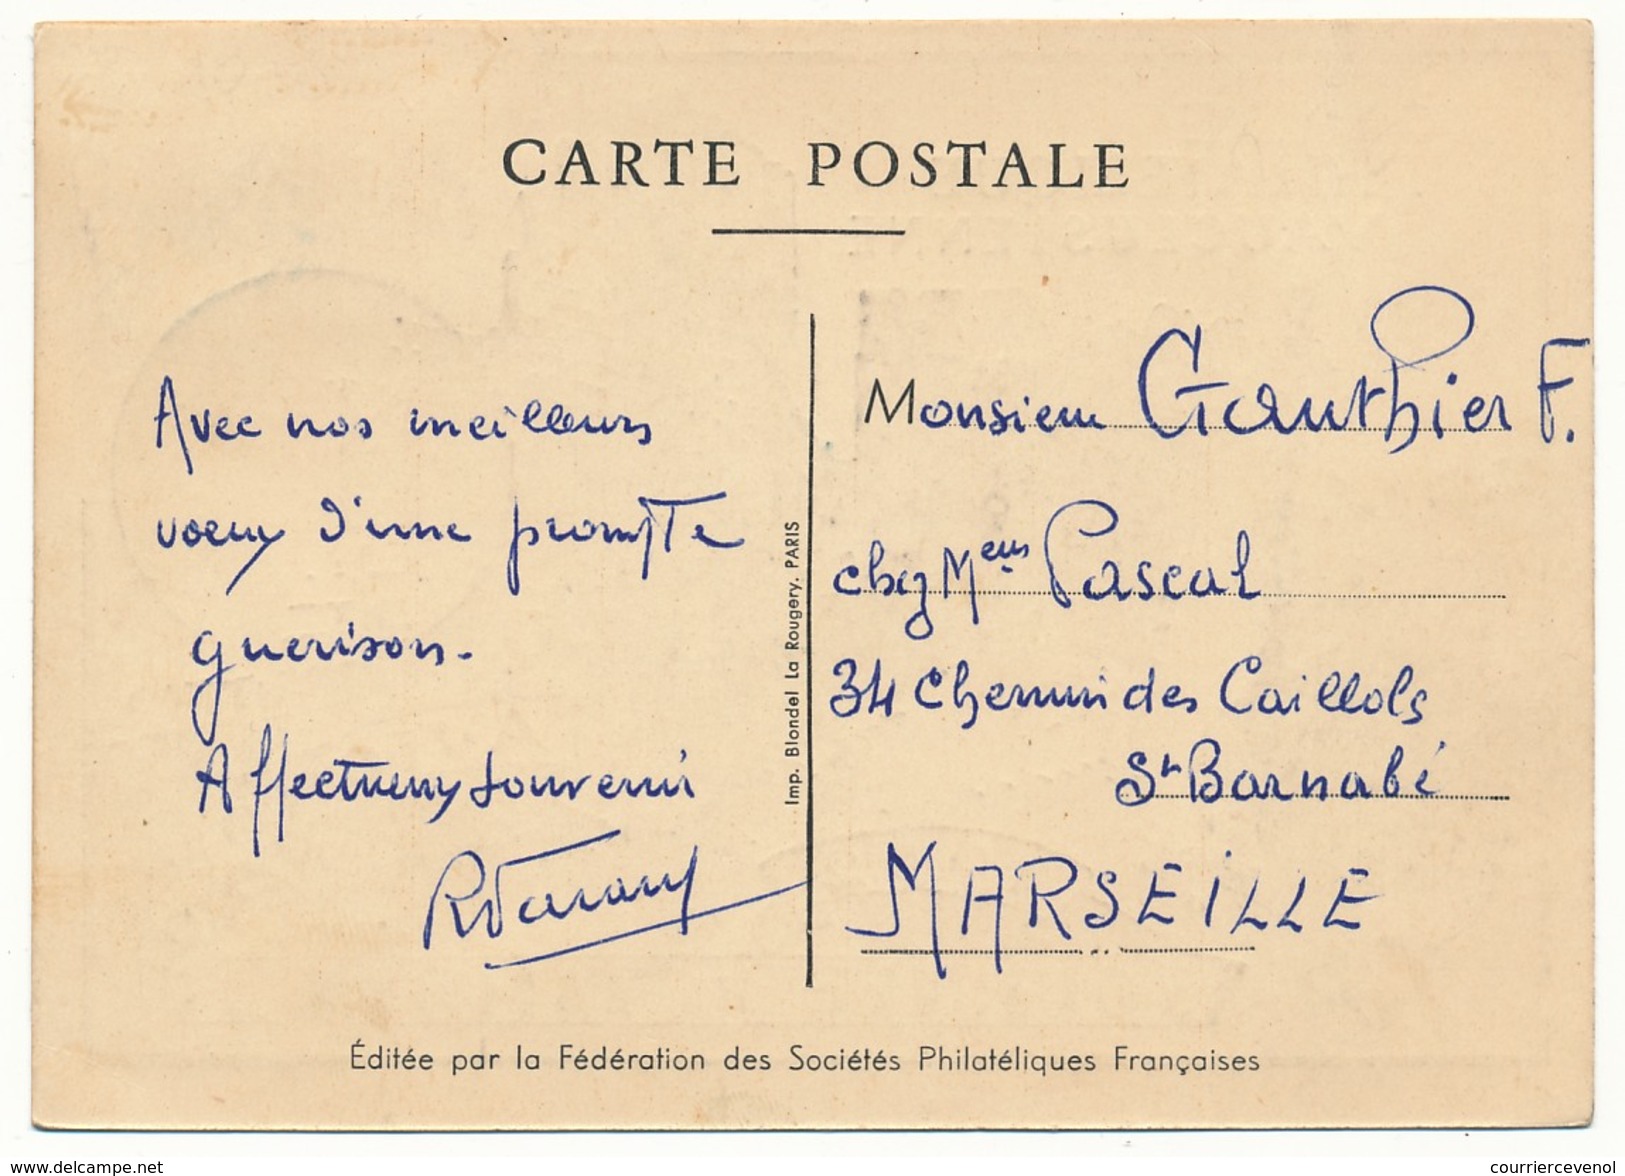 CARTE POSTALE
Avec nos meilleurs
voeux d'une prompte
guerison.
Affectueux souvenir
Imp. Blondel La Rougery. PARIS
Monsieur Gauthier F.
chez Meur Pascal
34 Chemin des Caillols
St Barnabé
MARSEILLE
Éditée par la Fédération des Sociétés Philatéliques Françaises
www.delcampe.net
courriercevenol